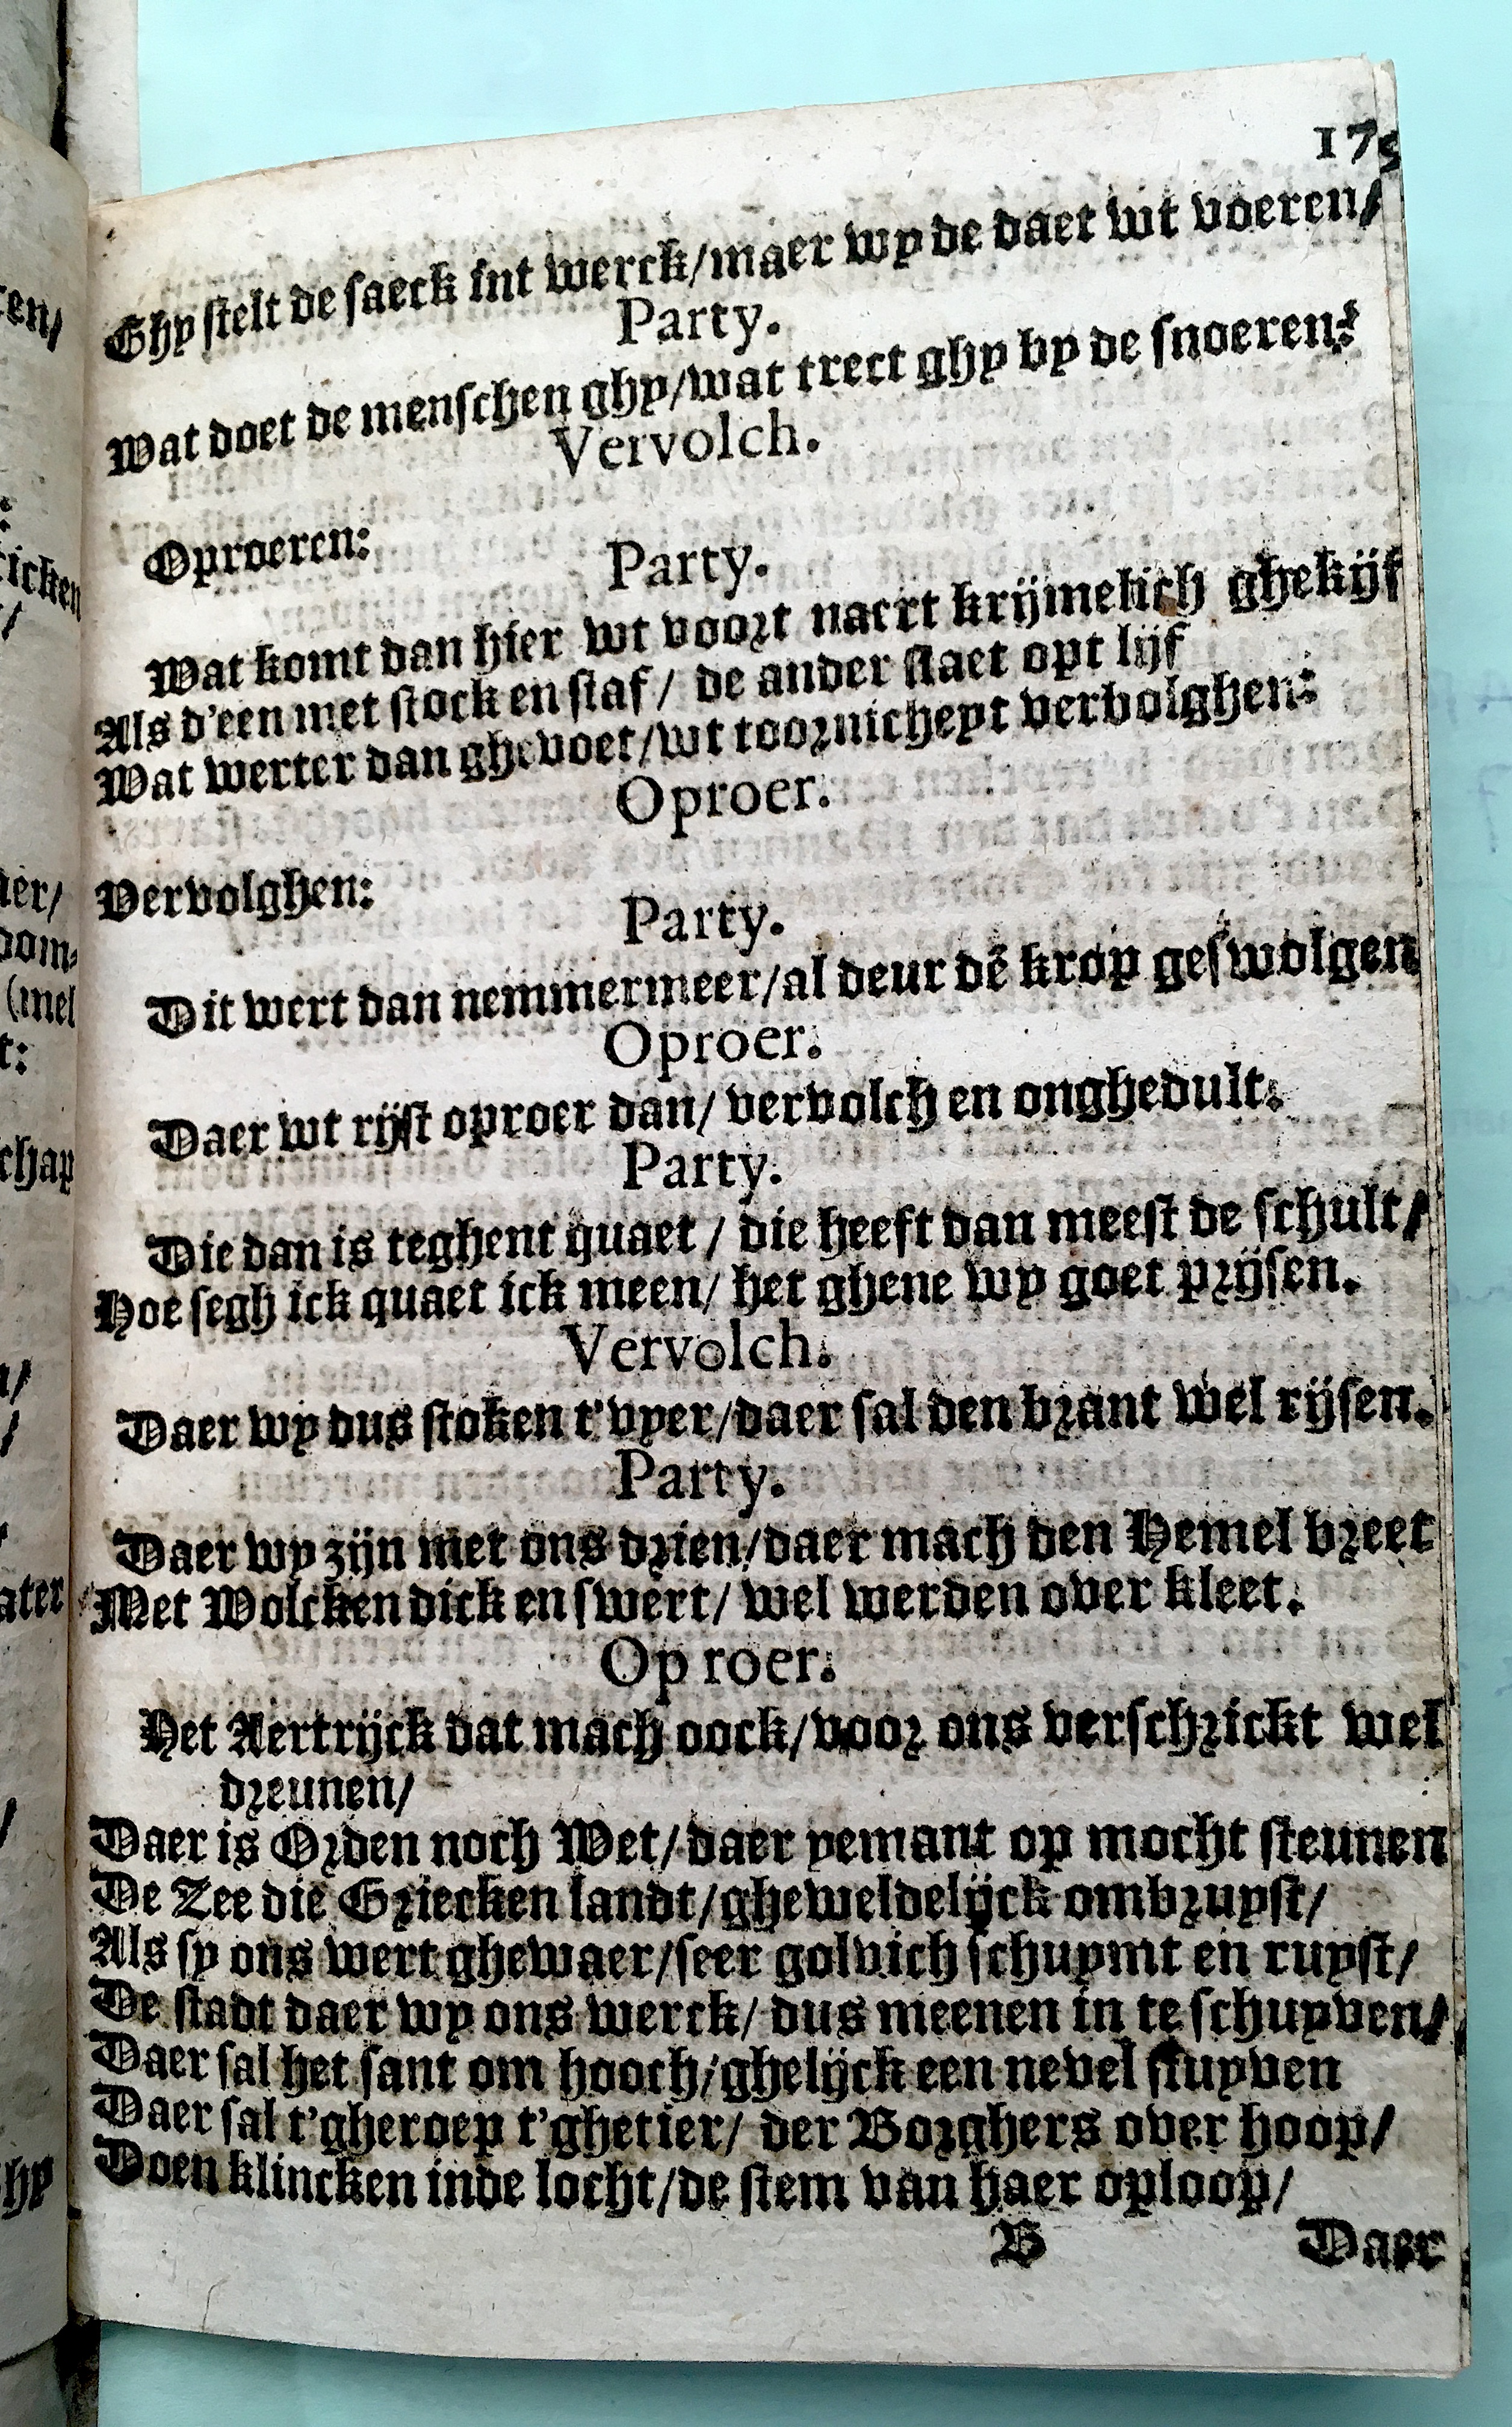 175
Ghy stelt de saeck int werck/maer wy de daet wt voeren/
Party.
Wat doet de menschen ghy/wat trect ghy by de snoeren?
Vervolch.
Oproeren:
Party.
Wat komt dan hier wt voort naert krijmelich ghekijf
Als d'een met stock en staf/ de ander staet opt lijf
Wat werter dan ghevoet/wt toornicheyt vervolghen:
Oproer.
Vervolghen:
Party.
Dit wert dan nemmermeer/al deur dē krop geswolgen
Oproer.
Daer wt rijst oproer dan/ vervolch en onghedult.
Party.
Die dan is teghent quaet / die heeft dan meest de schult/
Hoe segh ick quaet ick meen/ het ghene wy goet prijsen.
Vervolch.
Daer wy dus stoken t'vyer/daer sal den brant wel rijsen.
Party.
Daer wy zijn met ons drien/daer mach den Hemel breet
Met Wolcken dick en swert/ wel werden over kleet.
Op roer.
Het Aertrijck dat mach oock/voor ons verschrickt wel
dreunen/
Daer is Orden noch Wet/daer yemant op mocht steunen
De Zee die Griecken landt/gheweldelijck ombruyst/
Als sy ons wert ghewaer/seer golvich schuymt en ruyst/
De stadt daer wy ons werck/ dus meenen in te schuyven/
Daer sal het sant om hooch/ghelijck een nevel stuyven
Daer sal t'gheroep t'ghetier/ der Borghers over hoop/
Doen klincken inde locht/de stem van haer oploop/
B Daer